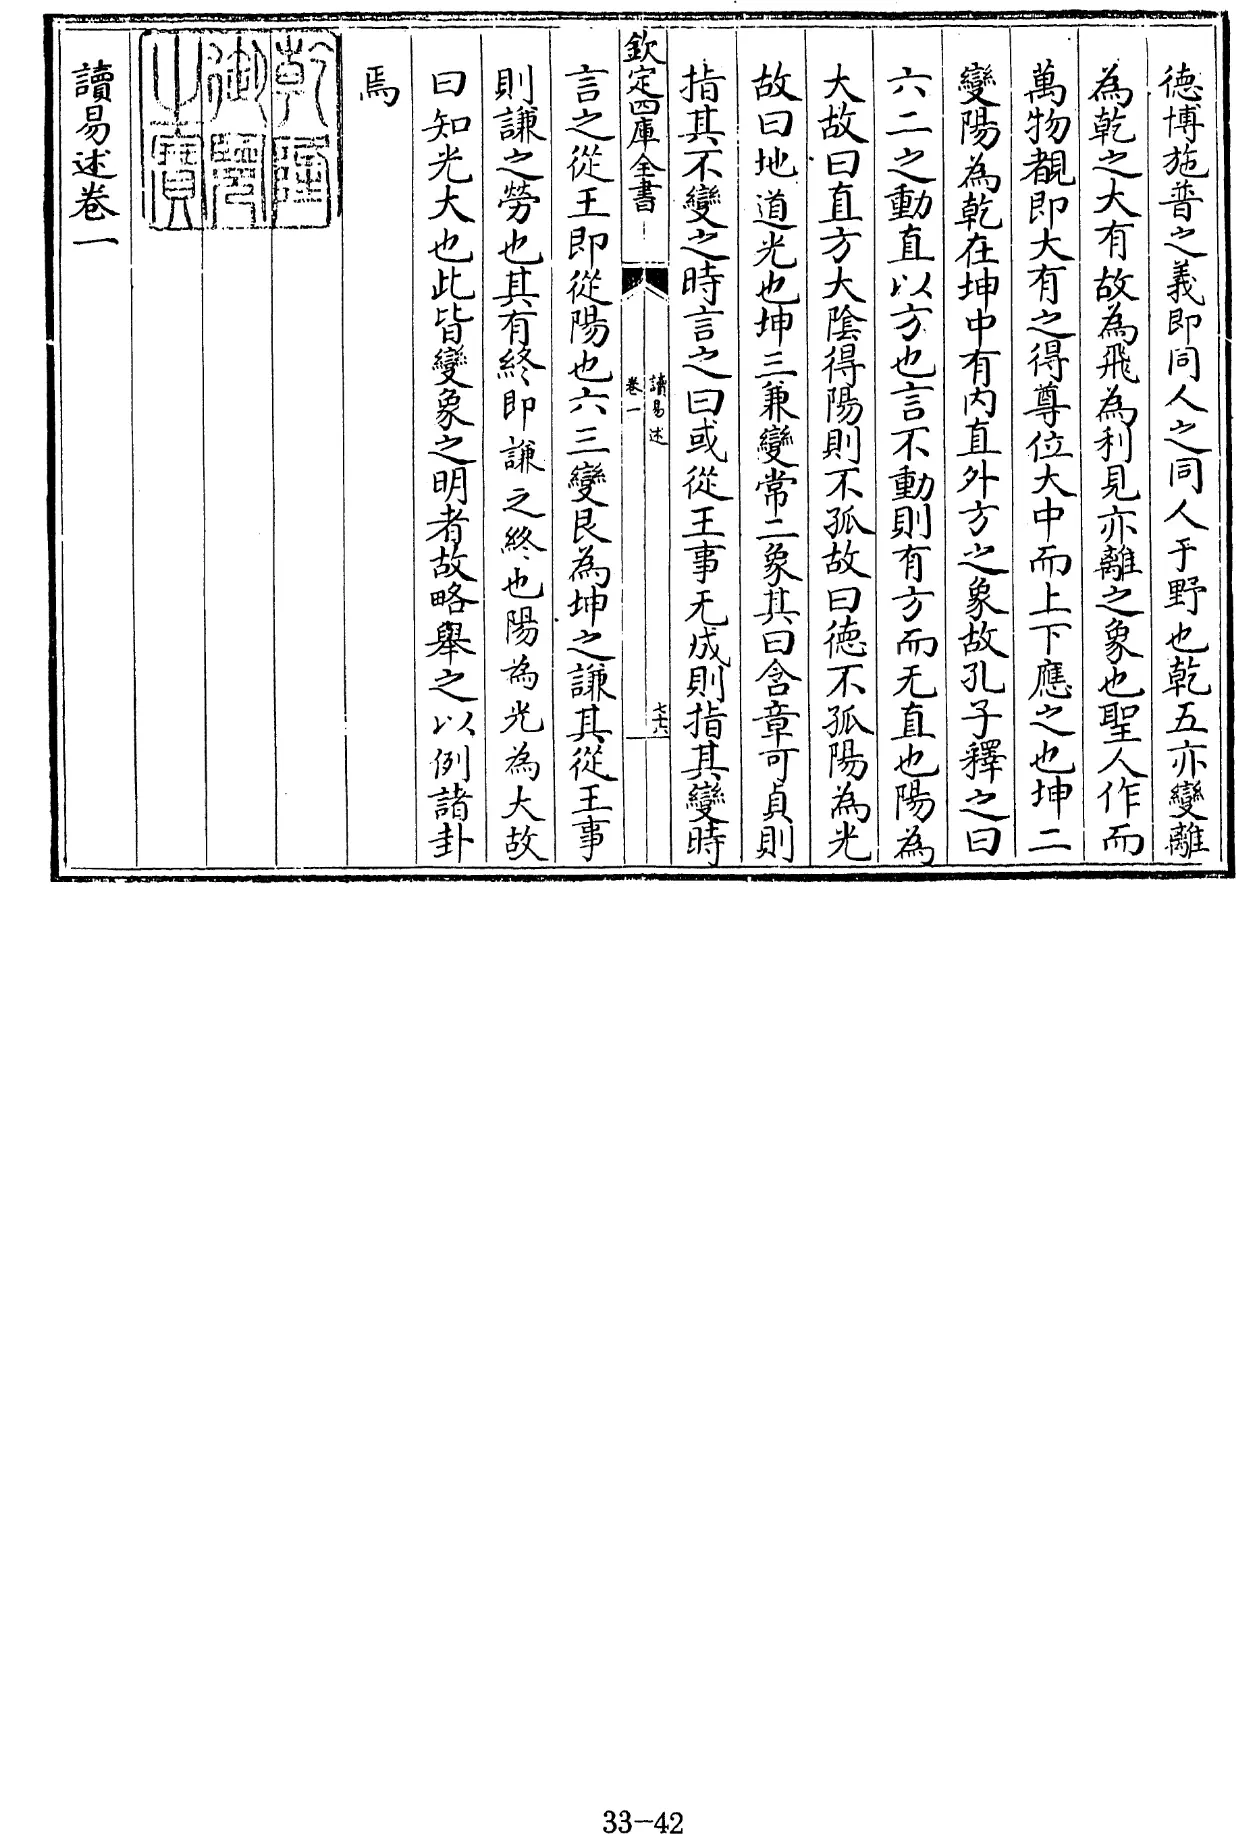 德博施普之義即同人之同人于野也乾五亦變離
為乾之大有故為飛為利見亦離之象也聖人作而
萬物覩即大有之得尊位大中而上下應之也坤二
變陽為乾在坤中有内直外方之象故孔子釋之曰
六二之動直以方也言不動則有方而无直也陽為
大故曰直方大陰得陽則不孤故曰德不孤陽為光
故曰地道光也坤三兼變常二象其曰含章可貞則
指其不變之時言之曰或從王事无成則指其變時
欽定四庫全書
讀易述
卷一
七十六
言之從王即從陽也六三變艮為坤之謙其從王事
則謙之勞也其有終即謙之終也陽為光為大故
曰知光大也此皆變象之明者故略舉之以例諸卦
焉
乾隆
御覽
之寶
讀易述卷一
33-42